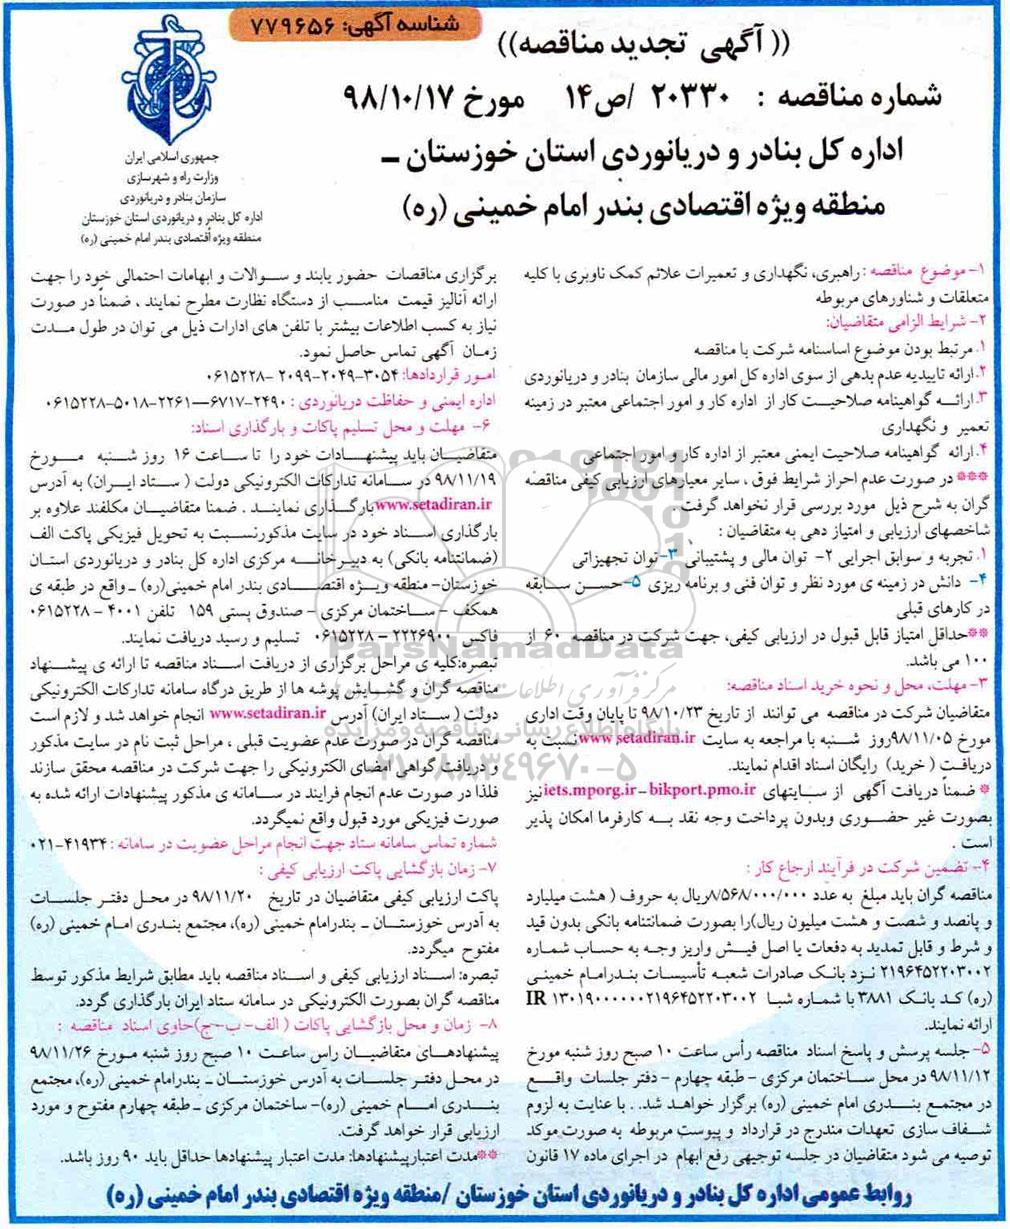 شناسه آگهی: ۷۷۹۶۵۶
(( آگهی تجدید مناقصه))
شماره مناقصه : ۲۰۳۳۰ /ص۱۴ مورخ ۹۸/۱۰/۱۷
اداره کل بنادر و دریانوردی استان خوزستان ـ
منطقه ویژه اقتصادی بندر امام خمینی (ره)
جمهوری اسلامی ایران
وزارت راه و شهرسازی
سازمان بنادر و دریانوردی
اداره کل بنادر و دریانوردی استان خوزستان
منطقه ویژه اقتصادی بندر امام خمینی (ره)
۱- موضوع مناقصه : راهبری، نگهداری و تعمیرات علائم کمک ناوبری با کلیه
متعلقات و شناورهای مربوطه
۲- شرایط الزامی متقاضیان:
۱. مرتبط بودن موضوع اساسنامه شرکت با مناقصه
۲.ارائه تاییدیه عدم بدهی از سوی اداره کل امور مالی سازمان بنادر و دریانوردی
۳.ارائـه گواهینامه صلاحیـت کار از اداره کار و امور اجتماعی معتبر در زمینه
تعمیر و نگهداری
۴.ارائه گواهینامه صلاحیت ایمنی معتبر از اداره کار و امور اجتماعی
*** در صورت عدم احراز شرایط فوق ، سایر معیارهای ارزیابی کیفی مناقصه
گران به شرح ذیل مورد بررسی قرار نخواهد گرفت .
شاخصهای ارزیابی و امتیاز دهی به متقاضیان :
۱. تجربه و سوابق اجرایی ۲- توان مالی و پشتیبانی ۳-توان تجهیزاتی
۴- دانش در زمینه ی مورد نظر و توان فنی و برنامه ریزی ۵-حسـن سـابقه
در کارهای قبلی
**حداقل امتیاز قابل قبول در ارزیابی کیفی، جهت شرکت در مناقصه ۶۰ از
۱۰۰ می باشد.
۳- مهلت، محل و نحوه خرید اسناد مناقصه:
متقاضیان شرکت در مناقصه می توانند از تاریخ ۹۸/۱۰/۲۳ تا پایان وقت اداری
مورخ ۹۸/۱۱/۰۵روز شـنبه با مراجعه به سایت www setadiran.ir نسبت به
دریافـت ( خرید) رایگان اسناد اقدام نمایند.
* ضمناً دریافت آگهی از سـایتهای iets.mporg.ir – bikport.pmo.ir نیز
بصورت غیر حضـوری وبدون پرداخت وجه نقد بـه کارفرما امکان پذیر
است .
۴- تضمین شرکت در فرآیند ارجاع کار :
مناقصه گران باید مبلغ به عدد ۸/۵۶۸/۰۰۰/۰۰۰ریال به حروف ( هشت میلیارد
و پانصد و شصت و هشت میلیون ریال)را بصورت ضمانتنامه بانکی بدون قید
و شرط و قابل تمدید به دفعات یا اصل فیـش واریز وجـه به حسـاب شماره
۲۱۹۶۴۵۲۲۰۳۰۰۲ نـزد بانـک صادرات شعبـه تأسیسـات بنـدرامام خمینـی
(ره) کـد بانـک ۳۸۸۱ با شمـاره شبـا IR ۱۳۰۱۹۰۰۰۰۰۰۰۲۱۹۶۴۵۲۲۰۳۰۰۲
ارائه نمایند.
۵- جلسه پرسش و پاسخ اسناد مناقصه رأس ساعت ۱۰ صبح روز شنبه مورخ
۹۸/۱۱/۱۲ در محل سـاختمان مرکزی - طبقه چهارم - دفتر جلسات واقـع
در مجتمـع بنـدری امام خمینی (ره) برگزار خواهـد شد. . با عنایت به لزوم
شـفاف سازی تعهدات مندرج در قرارداد و پیوست مربوطه به صورت موکد
توصیه می شود متقاضیان در جلسه توجیهی رفع ابهام در اجرای ماده ۱۷ قانون
برگزاری مناقصات حضور یابند و سـوالات و ابهامات احتمالی خود را جهت
ارائه آنالیز قیمت مناسـب از دستگاه نظارت مطرح نمایند ، ضمناً در صورت
نیاز به کسب اطلاعات بیشتر با تلفن های ادارات ذیل می توان در طول مـدت
زمـان آگهی تماس حاصل نمود.
امـور قراردادها: ۳۰۵۴-۲۰۴۹-۲۰۹۹ -۰۶۱۵۲۲۸
اداره ایمنی و حفاظت دریانوردی : ۲۴۹۰-۶۷۱۷—۲۲۶۱-۵۰۱۸-۰۶۱۵۲۲۸
۶- مهلت و محل تسلیم پاکات و بارگذاری اسناد:
متقاضیـان باید پیشنهـادات خود را تا ساعت ۱۶ روز شـنبه مـورخ
۹۸/۱۱/۱۹ در سـامانه تدارکات الکترونیکی دولت ( سـتاد ایـران) به آدرس
www.setadiran.ir بارگـذاری نماینـد . ضمنا متقاضیان مکلفند علاوه بر
بارگذاری اسـناد خود در سایت مذکورنسبت به تحویل فیزیکی پاکت الف
(ضمانتنامه بانکی) به دبیـرخانـه مرکزی اداره کل بنادر و دریانوردی استـان
خوزستان- منطقه ویـژه اقتصـادی بندر امام خمینی(ره) ـ واقع در طبقه ی
همکف - سـاختمان مرکزی - صندوق پستی ۱۵۹ تلفن ۴۰۰۱ - ۰۶۱۵۲۲۸
فاکس ۲۲۲۶۹۰۰ – ۰۶۱۵۲۲۸ تسلیم و رسید دریافت نمایند.
تبصره:کلیه ی مراحل برگزاری از دریافت اسناد مناقصه تا ارائه ی پیشـنهاد
مناقصه گران و گشـایش پوشه ها از طریق درگاه سامانه تدارکات الکترونیکی
دولت ( سـتاد ایران) آدرس www.setadiran.ir انجام خواهد شد و لازم است
مناقصه گران در صورت عدم عضویت قبلی ، مراحل ثبت نام در سایت مذکور
و دریافت گواهی امضای الکترونیکی را جهت شرکت در مناقصه محقق سازند
فلذا در صورت عدم انجام فرایند در سـامانه ی مذکور پیشنهادات ارائه شده به
صورت فیزیکی مورد قبول واقع نمیگردد.
شماره تماس سامانه ستاد جهت انجام مراحل عضویت در سامانه : ۴۱۹۳۴-۰۲۱
۷- زمان بازگشایی پاکت ارزیابی کیفی :
پاکت ارزیابی کیفی متقاضیان در تاریخ ۹۸/۱۱/۲۰ در محل دفتـر جلسـات
به آدرس خوزستـان ـ بندرامام خمینی (ره)، مجتمع بنـدری امـام خمینی (ره)
مفتوح میگردد.
تبصره: اسـناد ارزیابی کیفی و اسـناد مناقصه باید مطابق شرایط مذکور توسط
مناقصه گران بصورت الکترونیکی در سامانه ستاد ایران بارگذاری گردد.
۸- زمان و محل بازگشایی پاکات ( الف- ب-ج)حاوی اسناد مناقصه :
پیشنهادهـای متقاضیـان راس ساعـت ۱۰ صبح روز شنبه مـورخ ۹۸/۱۱/۲۶
در محـل دفتـر جلسـات به آدرس خوزستـان ـ بندرامام خمینی (ره)، مجتمع
بنـدری امـام خمینی (ره)- ساختمان مرکزی ـ طبقه چهارم مفتوح و مورد
ارزیابی قرار خواهد گرفت.
**مدت اعتبارپیشنهادها: مدت اعتبار پیشنهادها حداقل باید ۹۰ روز باشد.
روابط عمومی اداره کل بنادر و دریانوردی استان خوزستان /منطقه ویژه اقتصادی بندر امام خمینی (ره)
ParsNamadData
پایگاه اطلاع رسانی مناقصه و مزایده
۰۲۱-۸۸۳۴۹۶۷۰-۵